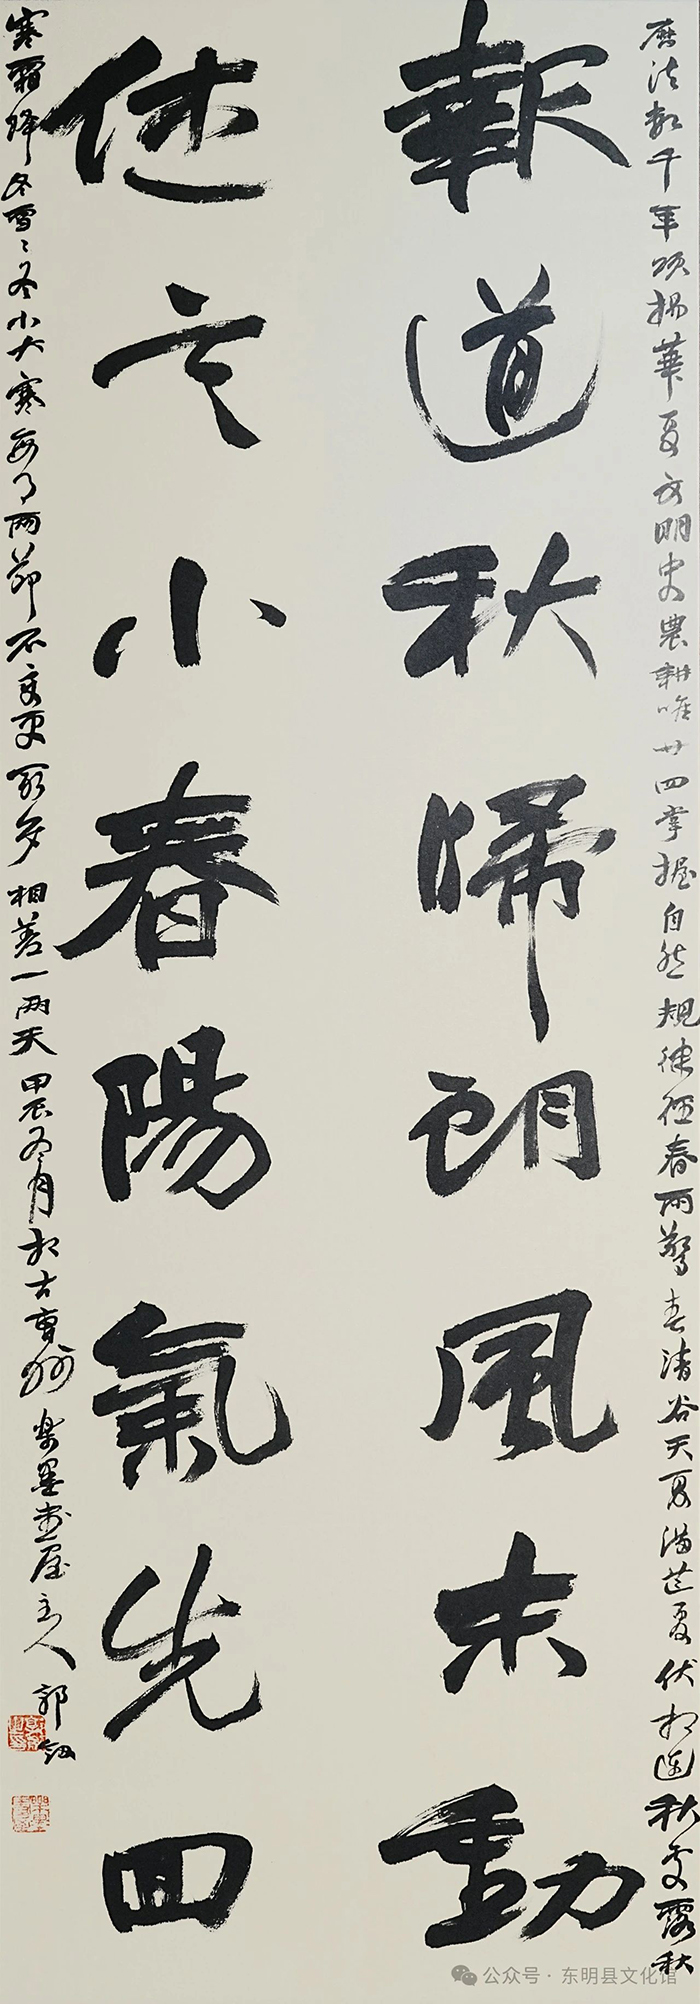 曆法数千年頌揚華夏文明史農耕唯廿四掌握自然規律 春雨驚春清谷天夏满芒夏伏相連秋處露秋
報道秋歸朔風未動
傳言小春陽氣先回
寒霜降冬雪〻冬小大寒每月两節不变更最多相差一两天甲辰冬月於古曹州樂墨書屋主人郭
公众号·东明县文化馆